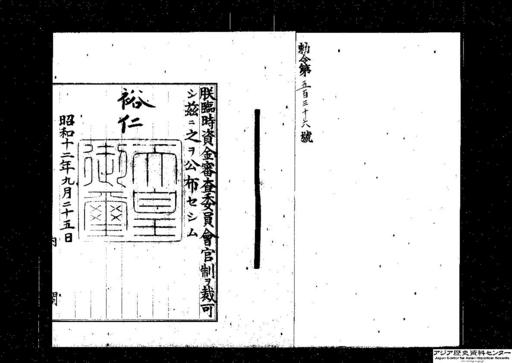 勅令第五百三十六號
朕臨時資金審査委員會官制ヲ裁可
シ茲ニ之ヲ公布セシム
裕仁
天皇御璽
昭和十二年九月二十五日
内閣
アジア歴史資料センター
Japan Center for Asian Historical Records